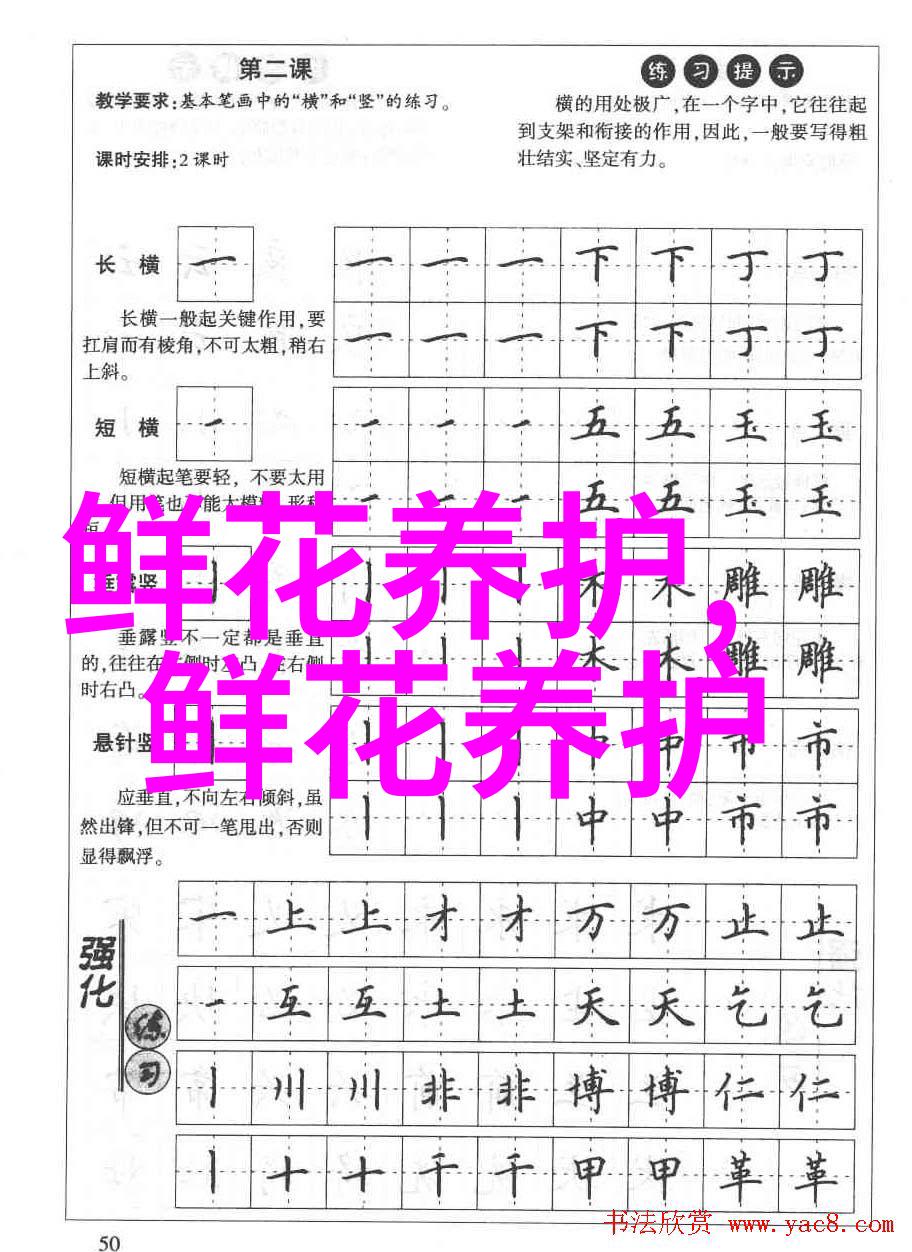 第二课
教学要求:基本笔画中的“横”和“竖”的练习。
课时安排:2课时
练习提示
横的用处极广,在一个字中,它往往起
到支架和衔接的作用,因此,一般要写得粗
壮结实、坚定有力。
长横 一 一 一 一 下 下 丁 丁
一 一 一 下 下 丁 丁
长横一般起关键作用,要
扛肩而有棱角,不可太粗,稍右
上斜。
短横 一 一 一 一 五 五 玉 玉
一 一 一 五 五 玉 玉
短横起笔要轻,不要太用
鲜花养护,
鲜花养护
丨 丨 丨 木 木 雕 雕
丨 丨 丨 木 木 雕 雕
垂露竖不一定都是垂直
的,往往在
时右凸。
悬针竖 丨 丨 丨 丨 中 中 市 市
丨 丨 丨 中 中 市 市
应垂直,不向左右倾斜,虽
然出锋,但不可一笔甩出,否则
显得飘浮。
强化练习
一 上 上 才 才 万 万 止 止
一 互 互 土 土 天 天 乞 乞
丨 川 川 非 非 博 博 仁 仁
丨 十 十 干 干 甲 甲 革 革
50
书法欣赏 www.yac8.com